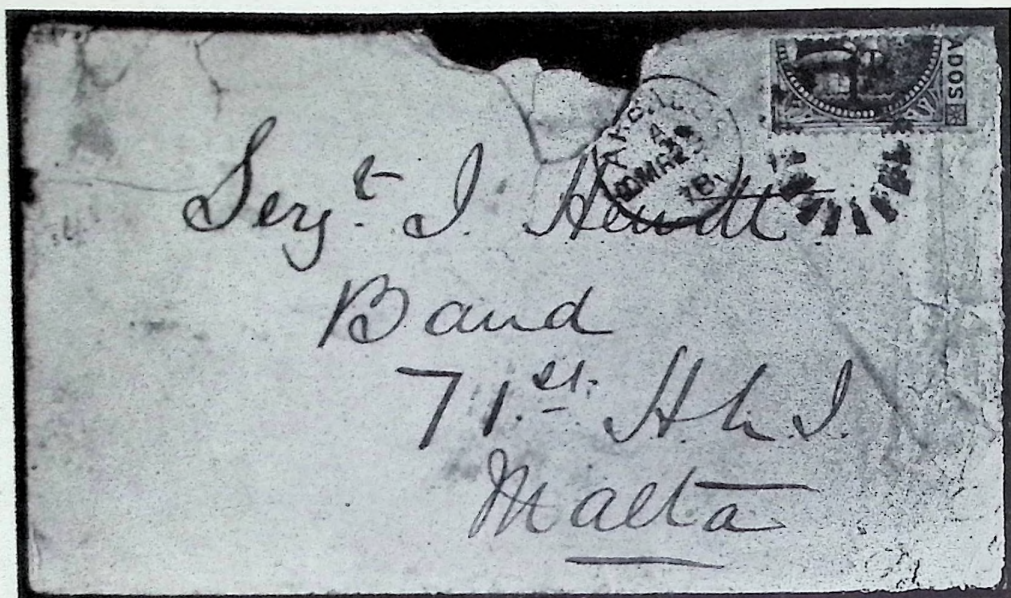 ADOS
A
MR 2
Sergt. J. Hewitt
Band
71st. H. L. I.
Malta